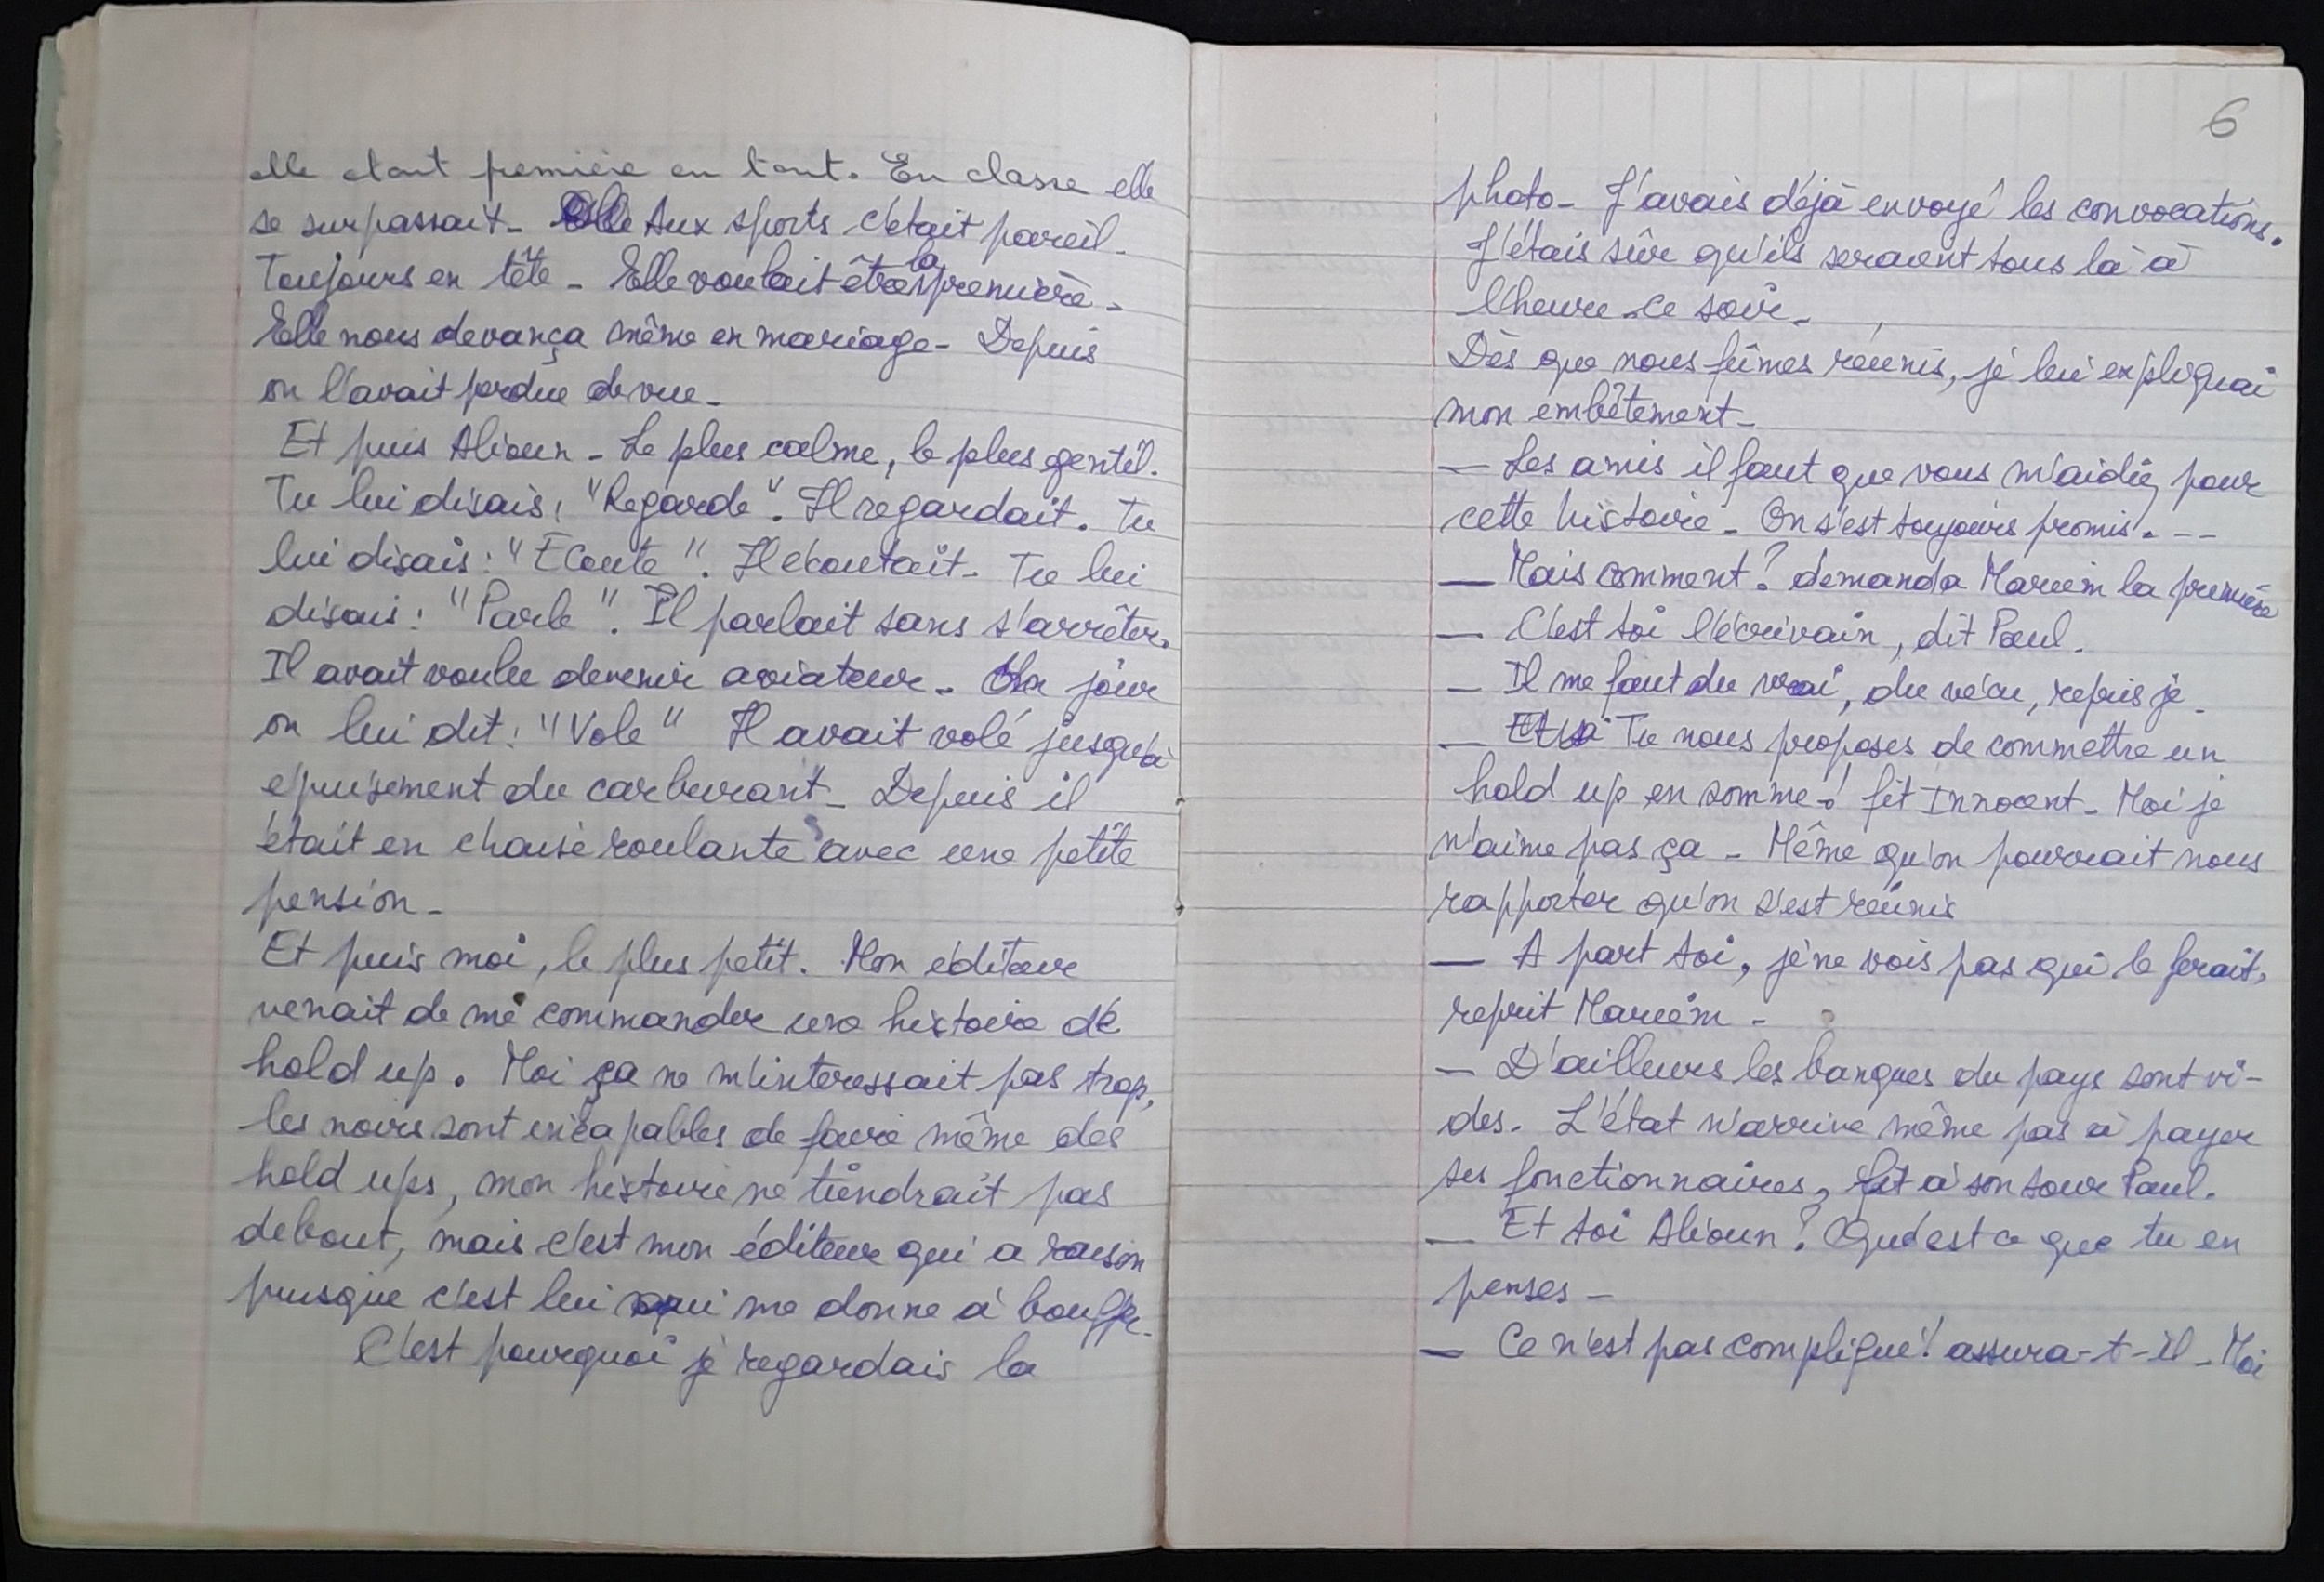 elle était première en tout. En classe elle
se surpassait - Aux sports c'était pareil -
Toujours en tête - Elle voulait être la première -
Elle nous devança même en mariage - Depuis
on l'avait perdue de vue -
Et puis Alioun - Le plus calme, le plus gentil.
Tu lui disais : "Regarde". Il regardait. Tu
lui disais : "Ecoute". Il écoutait - Tu lui
disais : "Parle". Il parlait sans s'arrêter.
Il avait voulu devenir aviateur - Un jour
on lui dit : "Vole" Il avait volé jusqu'à
épuisement du carburant - Depuis il
était en chaise roulante avec une petite
pension -
Et puis moi, le plus petit. Mon éditeur
venait de me commander une histoire de
hold up. Moi ça ne m'interessait pas trop,
les noirs sont incapables de faire même des
hold ups, mon histoire ne tiendrait pas
debout, mais c'est mon éditeur qui a raison
puisque c'est lui qui me donne à bouffer -
C'est pourquoi je regardais la
6
photo - J'avais déjà envoyé les convocations.
J'étais sûr qu'ils seraient tous là à
l'heure ce soir -
Dès que nous fûmes réunis, je lui expliquai
mon embêtement -
— Les amis il faut que vous m'aidiez pour
cette histoire - On s'est toujours promis. --
— Mais comment ? demanda Marièm la première
— C'est toi l'écrivain, dit Paul.
— Il me faut du vrai, du vécu, repris je -
— Tu nous proposes de commettre un
hold up en somme ! fit Innocent - Moi je
n'aime pas ça - Même qu'on pourrait nous
rapporter qu'on s'est réunis
— A part toi, je ne vois pas qui le ferait,
reprit Marièm -
— D'ailleurs les banques du pays sont vi-
des. L'état n'arrive même pas à payer
ses fonctionnaires, fit à son tour Paul.
— Et toi Alioun ? Qu'est ce que tu en
penses -
— Ce n'est pas compliqué ! assura-t-il - Moi